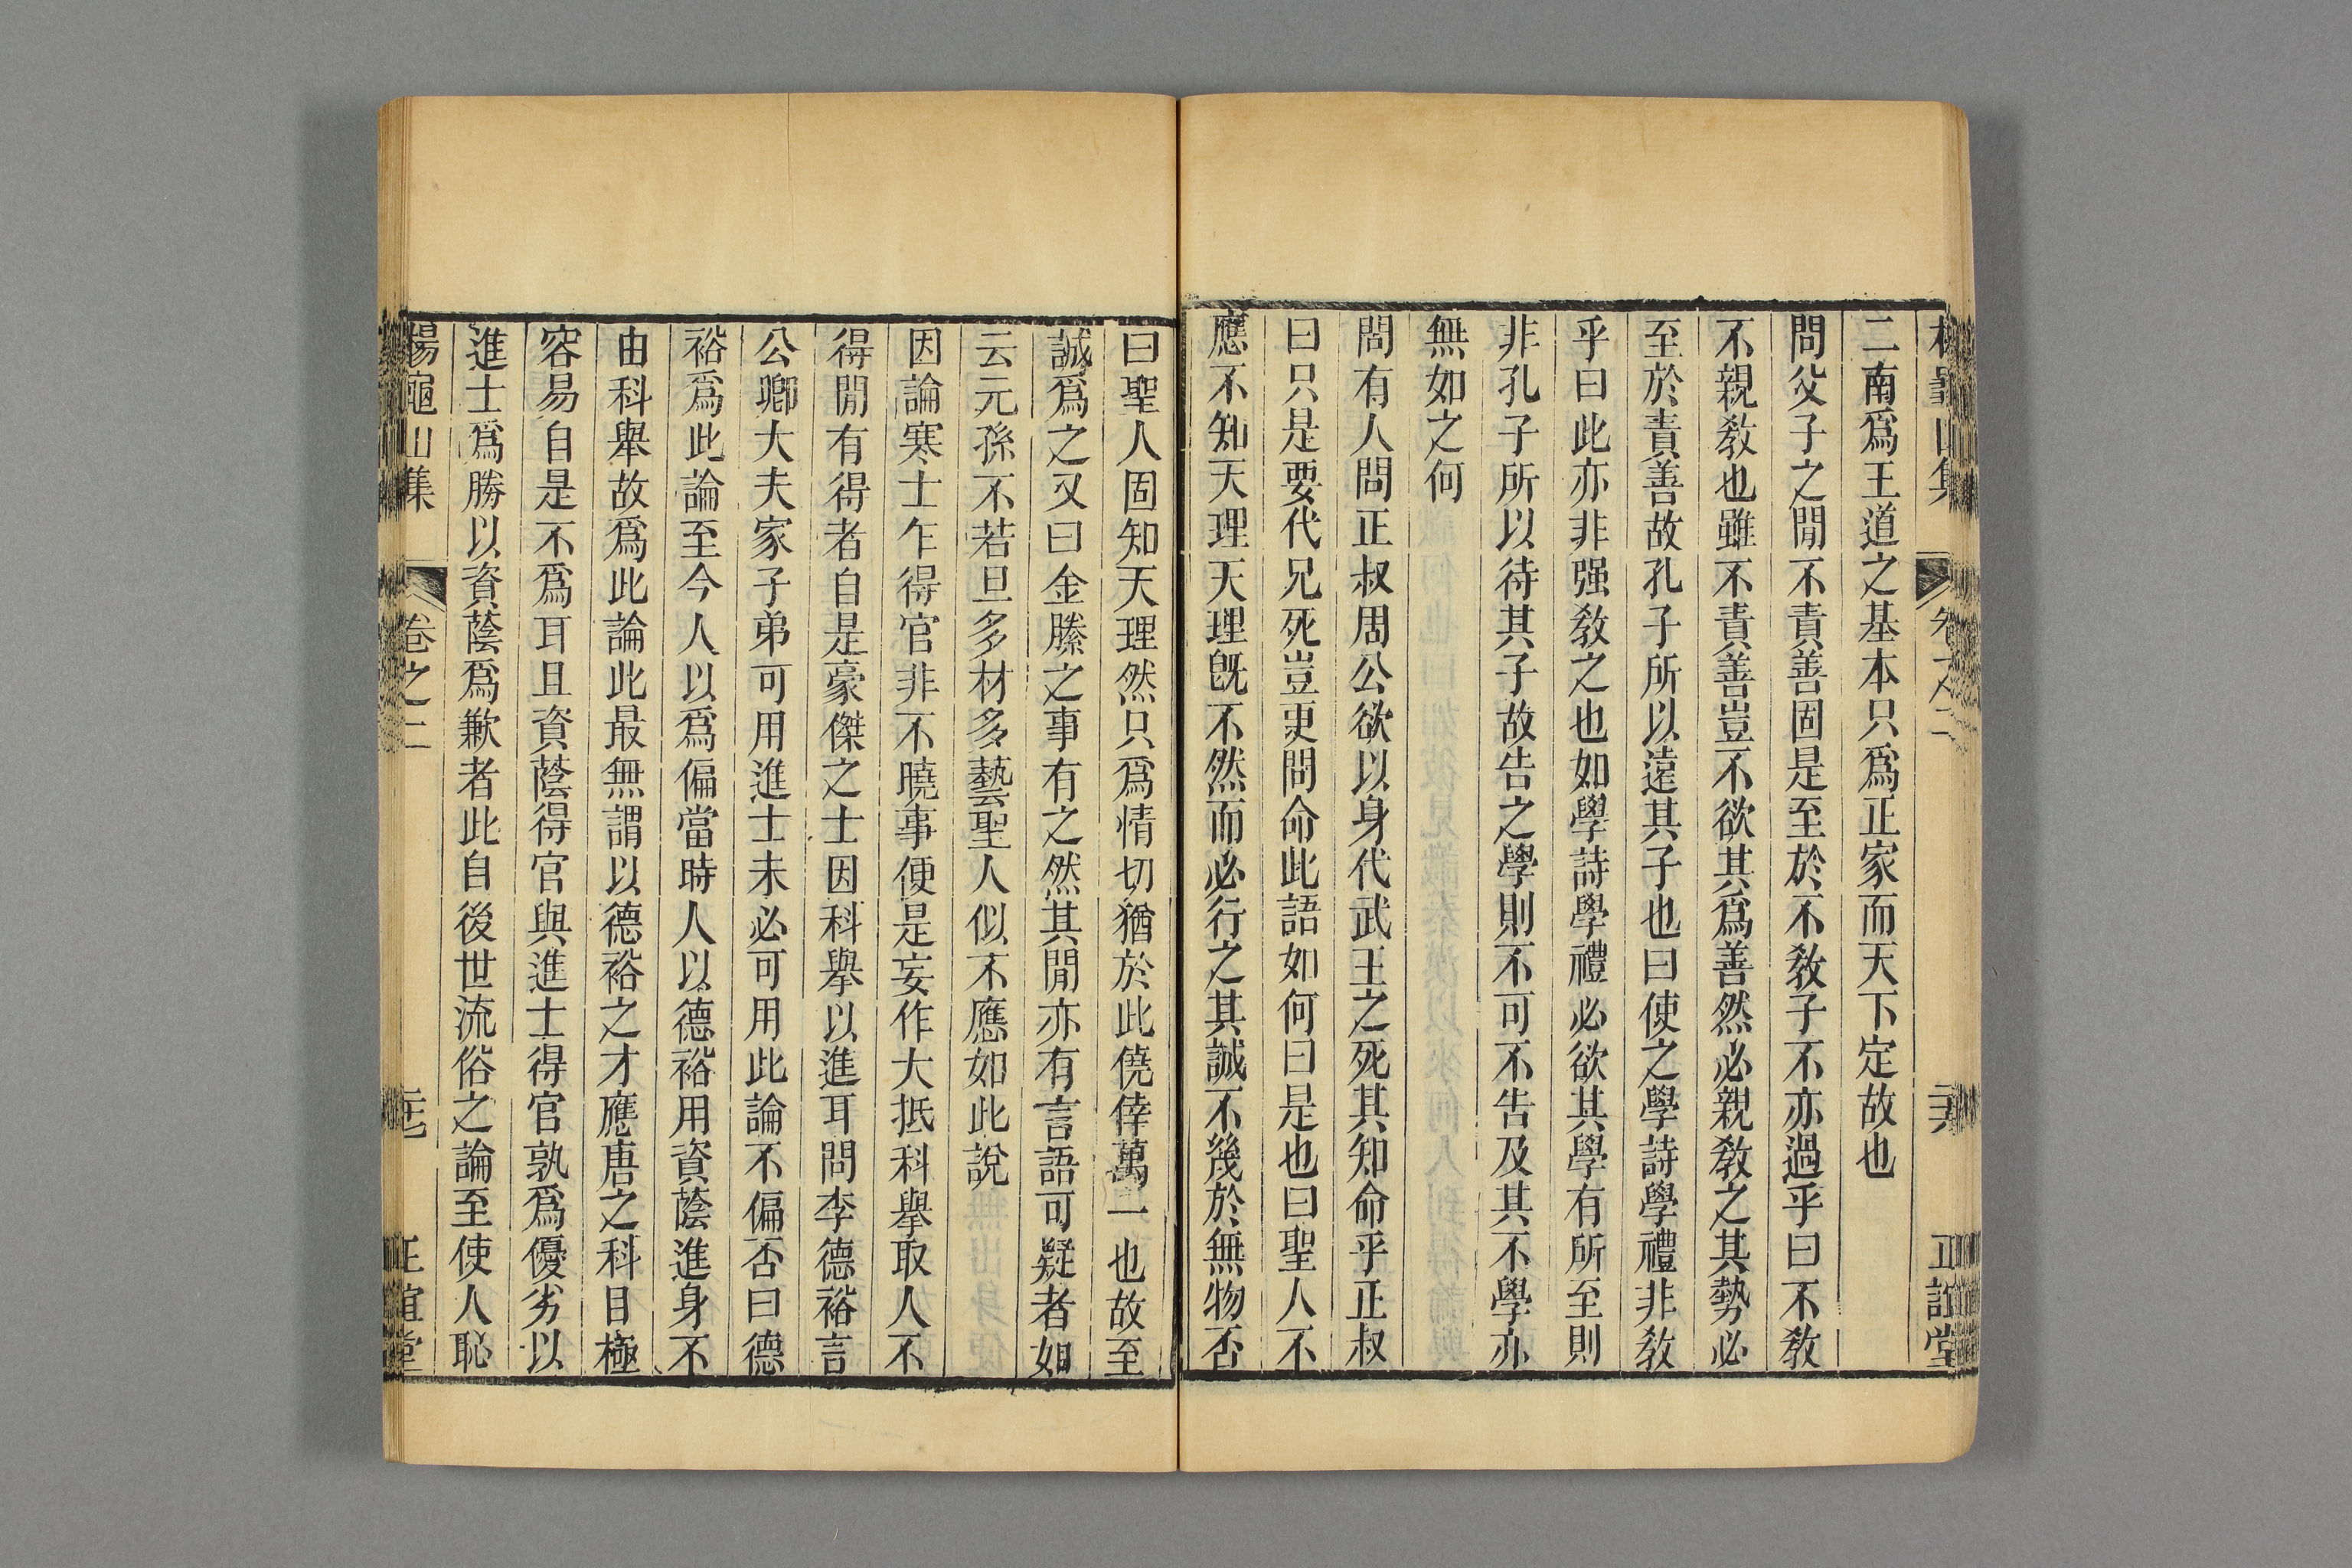 二南爲王道之基本只爲正家而天下定故也
問父子之閒不責善固是至於不敎子不亦過乎曰不敎
不親敎也雖不責善豈不欲其爲善然必親敎之其勢必
至於責善故孔子所以遠其子也曰使之學詩學禮非敎
乎曰此亦非强敎之也如學詩學禮必欲其學有所至則
非孔子所以待其子故告之學則不可不告及其不學亦
無如之何
問有人問正叔周公欲以身代武王之死其知命乎正叔
曰只是要代兄死豈更問命此語如何曰是也曰聖人不
應不知天理天理旣不然而必行之其誠不幾於無物否
曰聖人固知天理然只爲情切猶於此僥倖萬一也故至
誠爲之又曰金縢之事有之然其閒亦有言語可疑者如
云元孫不若旦多材多藝聖人似不應如此說
因論寒士乍得官非不曉事便是妄作大抵科舉取人不
得閒有得者自是豪傑之士因科舉以進耳問李德裕言
公卿大夫家子弟可用進士未必可用此論不偏否曰德
裕爲此論至今人以爲偏當時人以德裕用資蔭進身不
由科舉故爲此論此最無謂以德裕之才應唐之科目極
容易自是不爲耳且資蔭得官與進士得官孰爲優劣以
進士爲勝以資蔭爲歉者此自後世流俗之論至使人恥
楊龜山集 卷之二